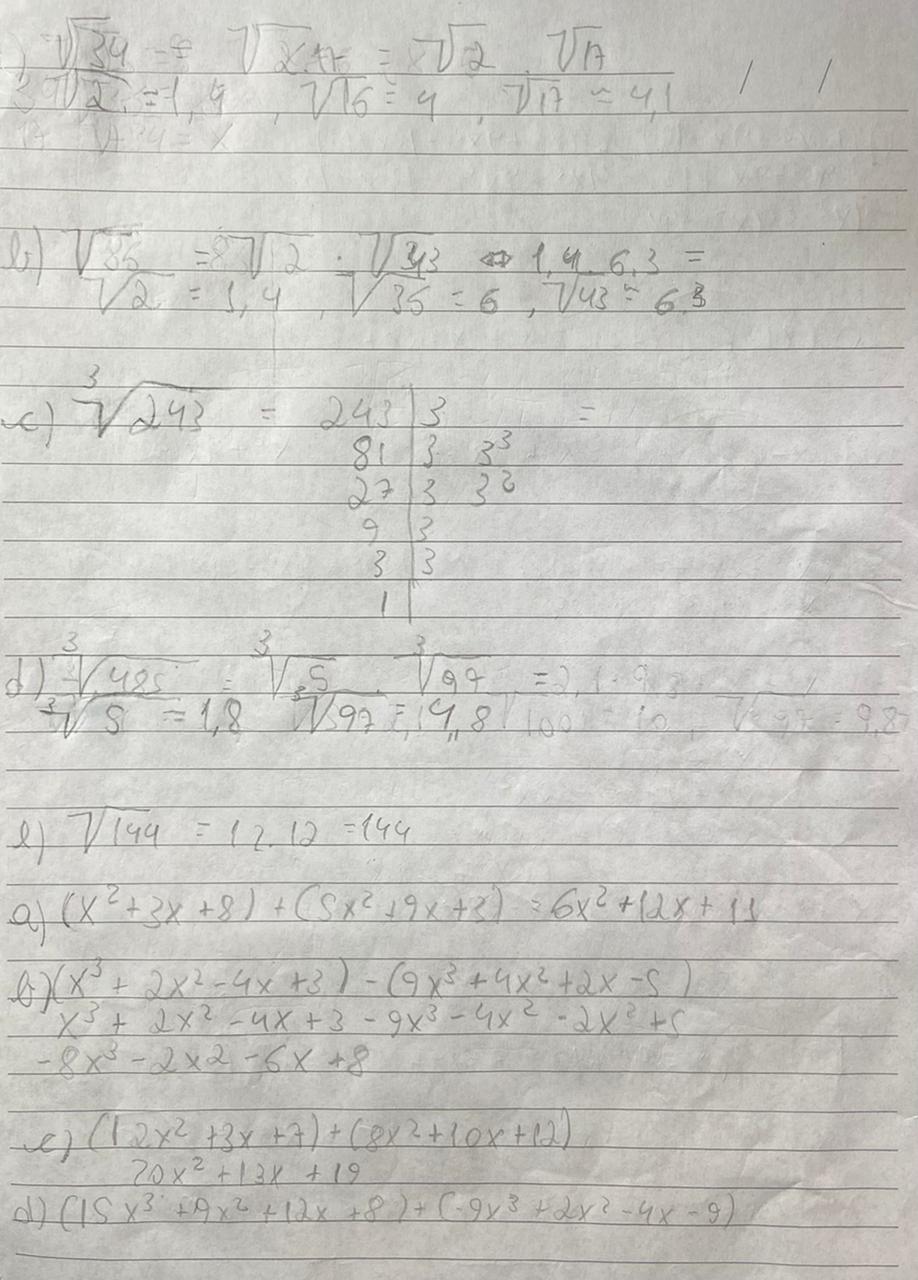 √34 = √2.17 = √2 . √17
√2 = 1,4 , √16 = 4 , √17 ≈ 4,1
b) √86 = √2 . √43 1,4 6,3 =
√2 = 1,4 , √36 = 6 , √43 ≈ 6.3
c) ³√243 = 243 | 3 =
81 | 3 3³
27 | 3 3²
9 | 3
3 | 3
1 |
d) ³√485 = ³√5 . ³√97 = 2,1 . 9,8
³√5 = 1,8 ³√97 = 4,8 √100 = 10 , √97 = 9,8
e) √144 = 12.12 = 144
a) (x² + 3x + 8) + (5x² + 9x + 3) = 6x² + 12x + 11
b) (x³ + 2x² - 4x + 3) - (9x³ + 4x² + 2x - 5)
x³ + 2x² - 4x + 3 - 9x³ - 4x² - 2x² + 5
-8x³ - 2x2 - 6x + 8
c) (12x² + 3x + 7) + (8x² + 10x + 12)
20x² + 13x + 19
d) (15x³ + 9x² + 12x + 8) + (-9x³ + 2x² - 4x - 9)